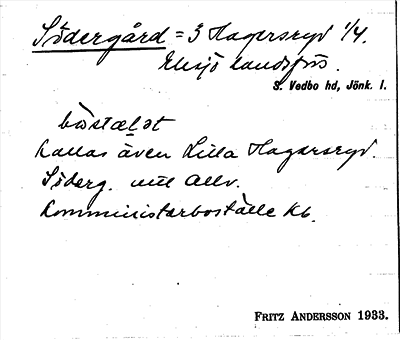 Södergård = 3 Hagersryd 1/4.
Eksjö landsförs.
S. Vedbo hd, Jönk. l.
bǝstæ̀lət
kallas även Lilla Hagersryd.
Söderg. enl. allv.
Komministerboställe Kb.
FRITZ ANDERSSON 1933.